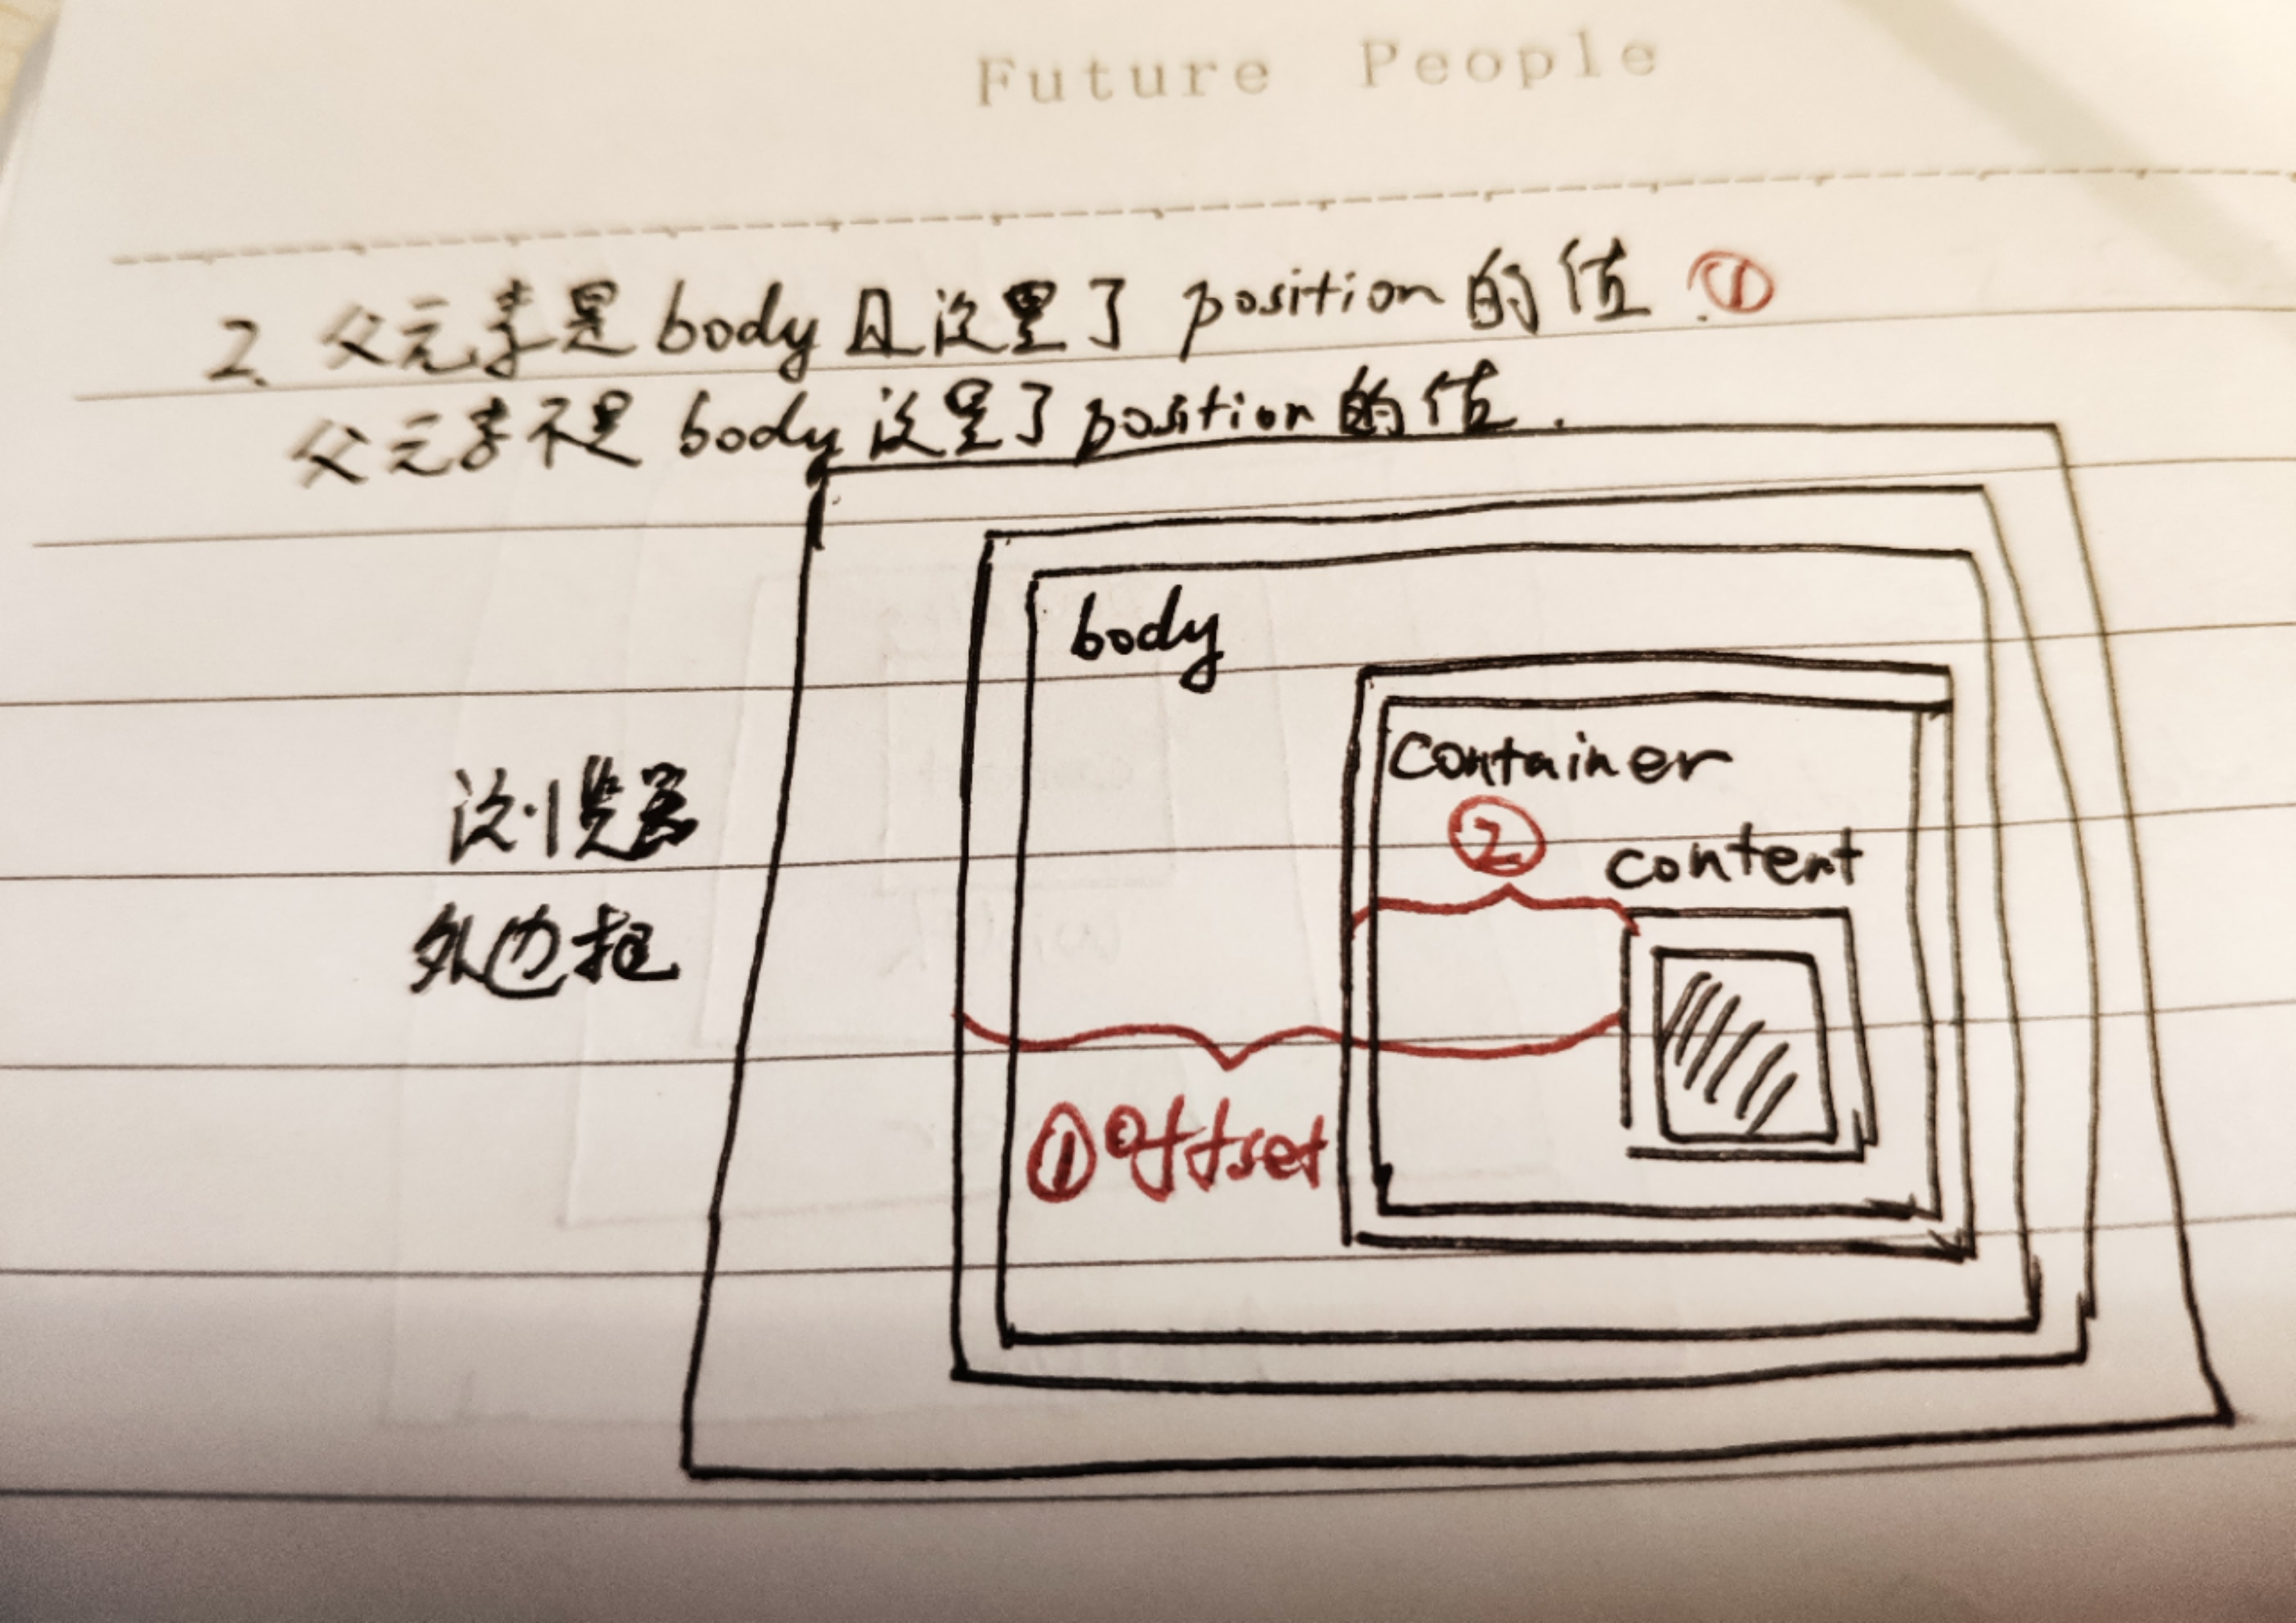 Future People
2. 父元素是 body 且设置了 position 的值. ①
父元素不是 body 设置了 position 的值.
body
Container
②
content
浏览器
外边框
① offset